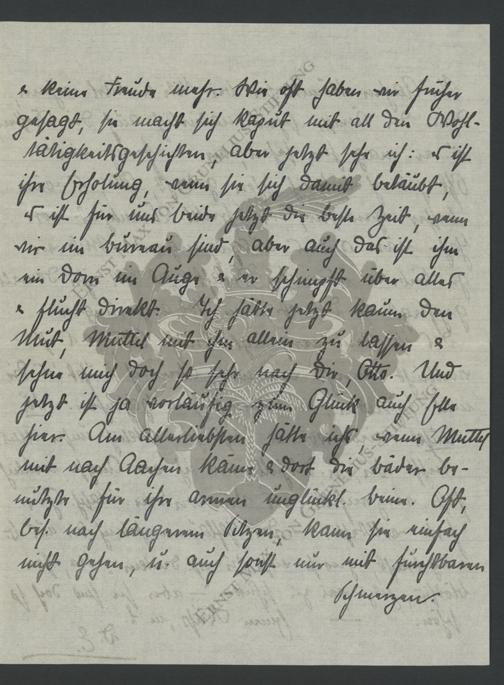 & keine Freude mehr. Wie oft haben wir früher
gesagt, sie macht sich kaput mit all den Wohl-
tätigkeitsgeschichten, aber jetzt sehe ich: es ist
ihre Erholung, wenn sie sich damit betäubt,
es ist für uns beide jetzt die beste Zeit, wenn
wir im bureau sind, aber auch das ist ihm
ein Dorn im Auge & er schimpft über alles
& flucht direkt. Ich hätte jetzt kaum den
Mut, Mutti mit ihm allein zu lassen &
sehne mich doch so sehr nach dir, Otto. Und
jetzt ist ja vorläufig zum Glück auch
hier. Am allerliebsten hätte ich, wenn Mutti
mit nach Aachen käme & dort die bäder be-
nützte für ihre armen unglückl. beine. Oft,
bes. nach längerem Sitzen, kann sie einfach
nicht gehen, u. auch sonst nur mit furchtbaren
Schmerzen.